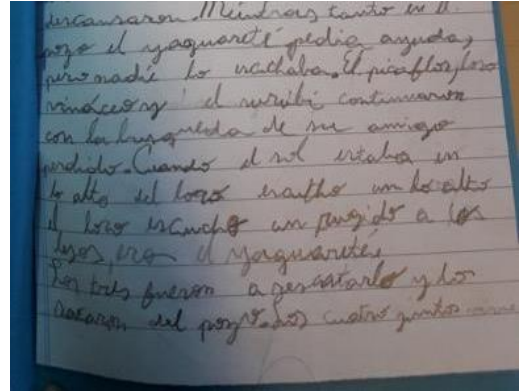 descansaron. Mientras tanto en el
pozo el yaguareté pedia ayuda,
pero nadie lo escuchaba. El picaflor, loro
vináceo y el surubi continuaron
con la busqueda de su amigo
perdido. Cuando el sol estaba en
lo alto del loro escucho un lo alto
el loro escucho un rugido a los
lejos, era el yaguareté.
Los tres fueron a rescatarlo y los
sacaron del pozo. Los cuatro juntos